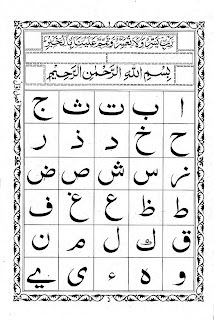 رَبِّ يَسِّرْ وَلَا تُعَسِّرْ وَتَمِّمْ عَلَيْنَا بِالْخَيْرِ
بِسْمِ اللّٰهِ الرَّحْمٰنِ الرَّحِيْمِ
ا ب ت ث ج
ح خ د ذ ر
ز س ش ص ض
ط ظ ع غ ف
ق ك ل م ن
و ه ء ی ے